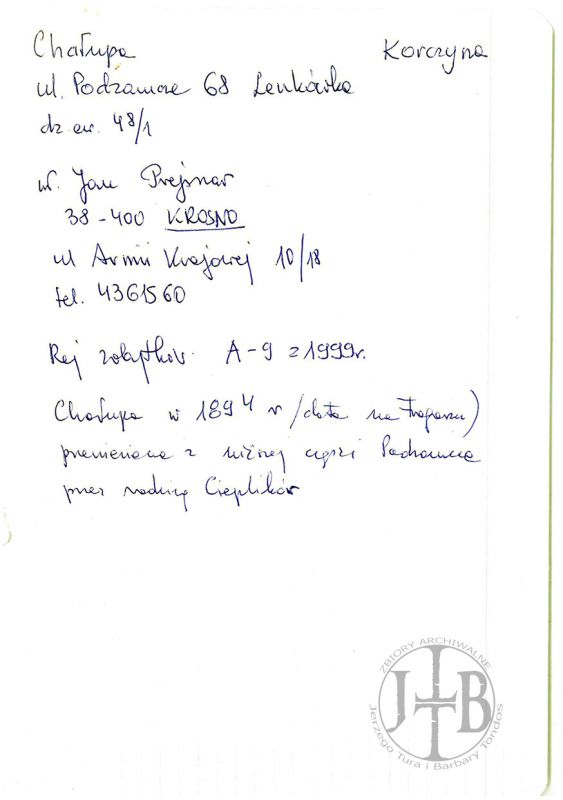 Chałupa Korczyna
ul. Podzamcze 68 Lenkówka
dz ew. 48/1
wł. Jan Prejsnar
38-400 KROSNO
ul Armii Krajowej 10/18
tel. 4361560
Rej zabytków A-9 z 1999r.
Chałupa w 1894 r /data na tragarzu)
przeniesiona z niższej części Podzamcza
przez rodzinę Cieplików
ZBIORY ARCHIWALNE
JTBT
Jerzego Tura i Barbary Tondos